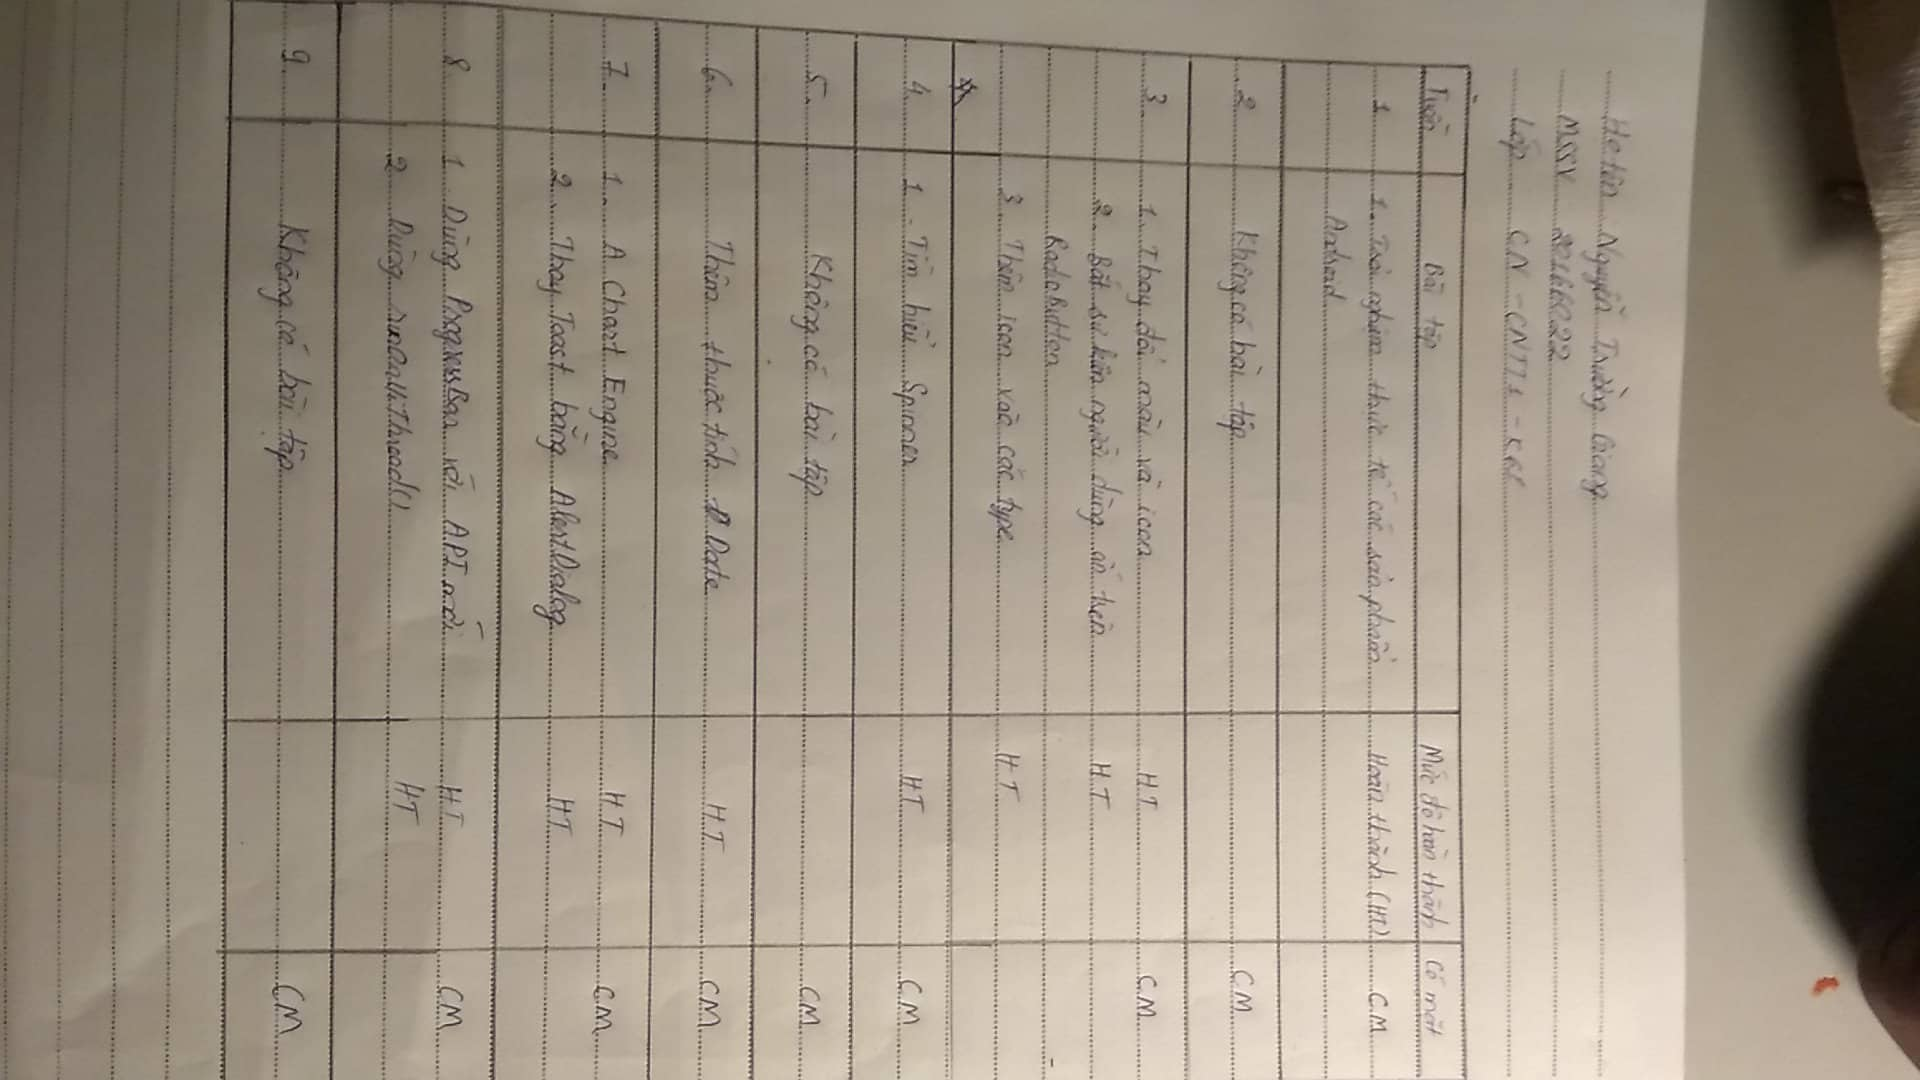 Họ tên Nguyễn Trường Giang
MSSV
Lớp CN - CNTT1 -
Tuần Bài tập Mức độ hoàn thành Có mặt
1 1. Trải nghiệm thực tế các sản phẩm Hoàn thành (HT) CM
Android
2 Không có bài tập CM
3. 1. Thay đổi màu và icon HT CM
2. Bắt sự kiện người dùng ấn trên HT
RadioButton
3. Thêm icon vào các type HT
4. 1. Tìm hiểu Spinner HT CM
5. Không có bài tập CM
6. Thêm thuộc tính Date HT CM
7. 1. A Chart Engine HT CM
2. Thay Toast bằng AlertDialog HT
8 1. Dùng ProgressBar với API mới HT CM
2 Dùng HT
9 Không có bài tập CM